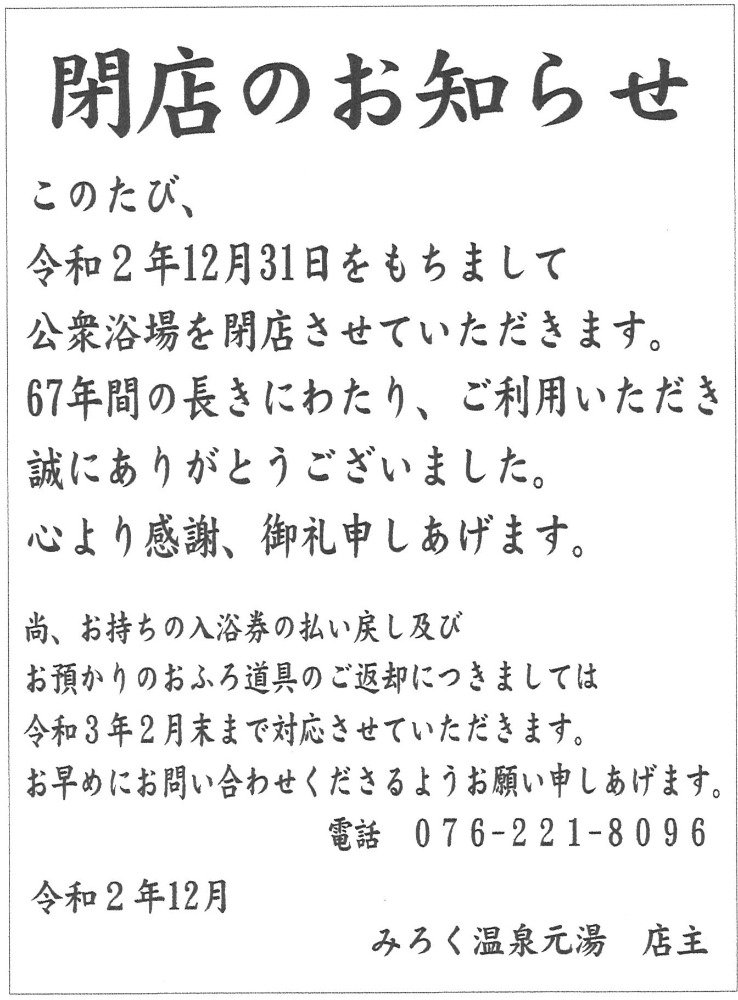 閉店のお知らせ
このたび、
令和２年12月31日をもちまして
公衆浴場を閉店させていただきます。
67年間の長きにわたり、ご利用いただき
誠にありがとうございました。
心より感謝、御礼申しあげます。
尚、お持ちの入浴券の払い戻し及び
お預かりのおふろ道具のご返却につきましては
令和３年２月末まで対応させていただきます。
お早めにお問い合わせくださるようお願い申しあげます。
電話　０７６-２２１-８０９６
令和２年12月
みろく温泉元湯　店主